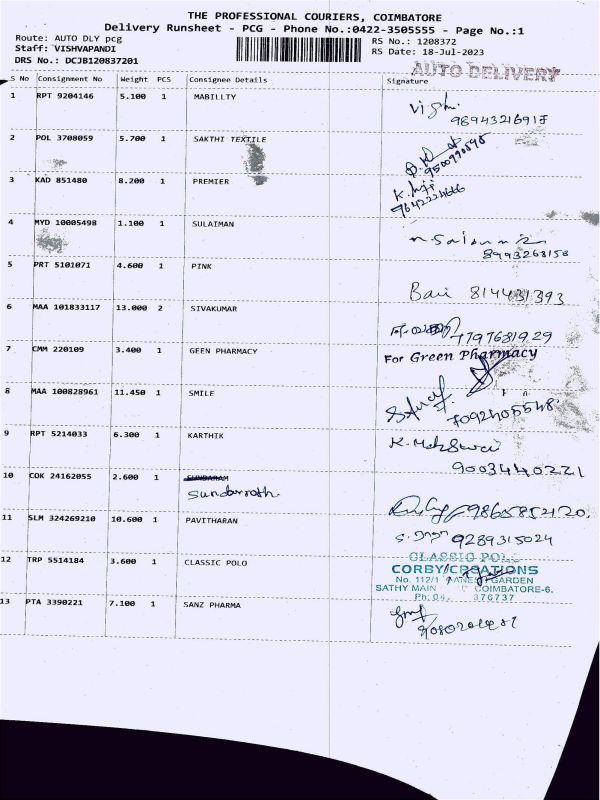 THE PROFESSIONAL COURIERS, COIMBATORE
Delivery Runsheet - PCG - Phone No.:0422-3505555 - Page No.:1
Route: AUTO DLY pcg RS No.: 1208372
Staff: VISHVAPANDI RS Date: 18-Jul-2023
DRS No.: DCJB120837201
AUTO DELIVERY
S No Consignment No Weight PCS Consignee Details Signature
1 RPT 9204146 5.100 1 MABILLTY
9894321691
2 POL 3708059 5.700 1 SAKTHI TEXTILE
3 KAD 851480 8.200 1 PREMIER
4 MYD 10005498 1.100 1 SULAIMAN
8993268158
5 PRT 5101071 4.600 1 PINK
814431393
6 MAA 101833117 13.000 2 SIVAKUMAR
7797681929
7 CMM 220109 3.400 1 GEEN PHARMACY
For Green Pharmacy
8 MAA 100828961 11.450 1 SMILE
7092405548
9 RPT 5214033 6.300 1 KARTHIK
9003440221
10 COK 24162055 2.600 1 SUNDARAM
9865852120
11 SLM 324269210 10.600 1 PAVITHARAN
9289315024
12 TRP 5514184 3.600 1 CLASSIC POLO
CLASSIC POLO
CORBY/CREATIONS
No. 112/1 GARDEN
SATHY MAIN COIMBATORE-6.
376737
13 PTA 3390221 7.100 1 SANZ PHARMA